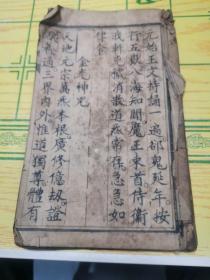 元始玉文持誦一遍却鬼延年按
行五嶽八海知聞魔王束首侍衛
我軒兇穢消散道炁常存急急如
律令
金光神咒
天地元宗萬炁本根廣修億劫證
通三界內外惟道獨尊體有